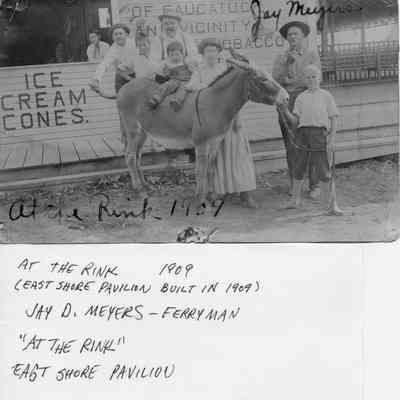 OF SAUGATUCK
AND VICINITY
TOBACCO
Jay Meyers
ICE
CREAM
CONES.
At the Rink 1909
AT THE RINK 1909
(EAST SHORE PAVILION BUILT IN 1909)
JAY D. MEYERS - FERRYMAN
"AT THE RINK"
EAST SHORE PAVILION